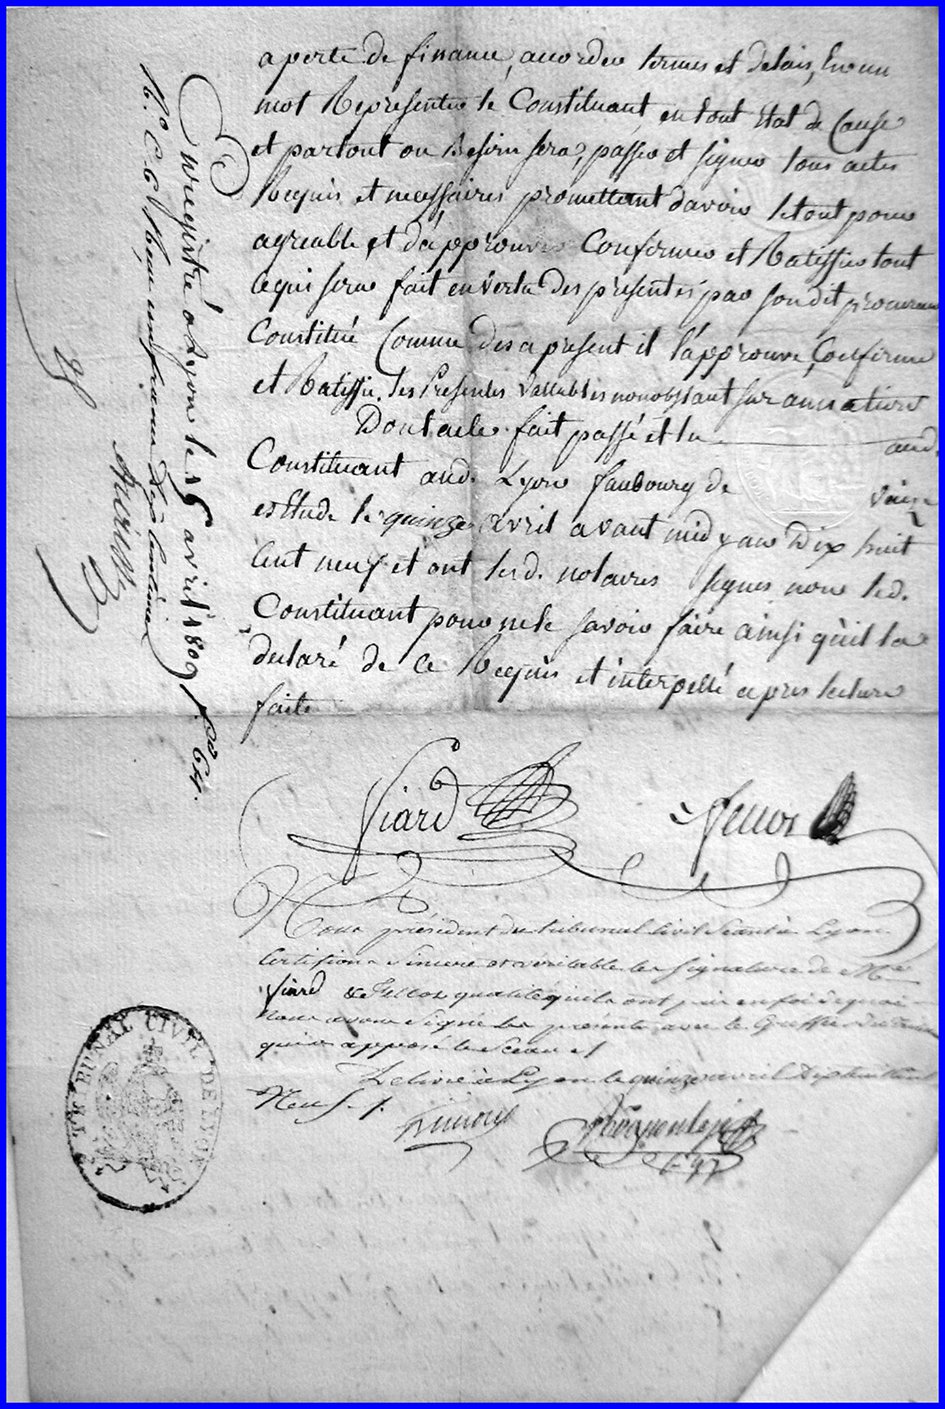 a perte de finance, accorder termes et delais, En un
mot Representer le Constituant en tout Etat de Cause
et partout ou Besoin sera, passer et signer tous actes
Requis et necessaires promettant d'avoir le tout pour
agreable et d'approuver Confirmer et Ratiffier tout
ce qui sera fait en vertu des presentes par son dit procureur
Constitué Comme des a present il l'approuve, Confirme
et Ratiffie. Les Presentes vallables nonobstant surannation
Dont acte fait passé et lu aud.
Constituant aud. Lyon faubourg de vaize
et Etude le quinze avril avant midy an Dix huit
Cent neuf et ont lesd. notaires signés non led.
Constituant pour ne le savoir faire ainsi qu'il l'a
declaré de ce Requis et interpellé apres lecture
faite
Viard
Nous président du tribunal Civil Séant à Lyon
Certifions Sincere et veritable les Signatures de Mes
Viard & qualité qu'ils ont pris en foi de quoi
Nous avons Signé les présentes avec le Greffier du
qui a apposé le Sceau
Délivré à Lyon le quinze avril Dix huit Cent
Neuf.
TRIBUNAL CIVIL DE LYON
Enregistré a Lyon le 15 avril 1809 f° 64.
R° C. 6 Reçu un franc dix centimes